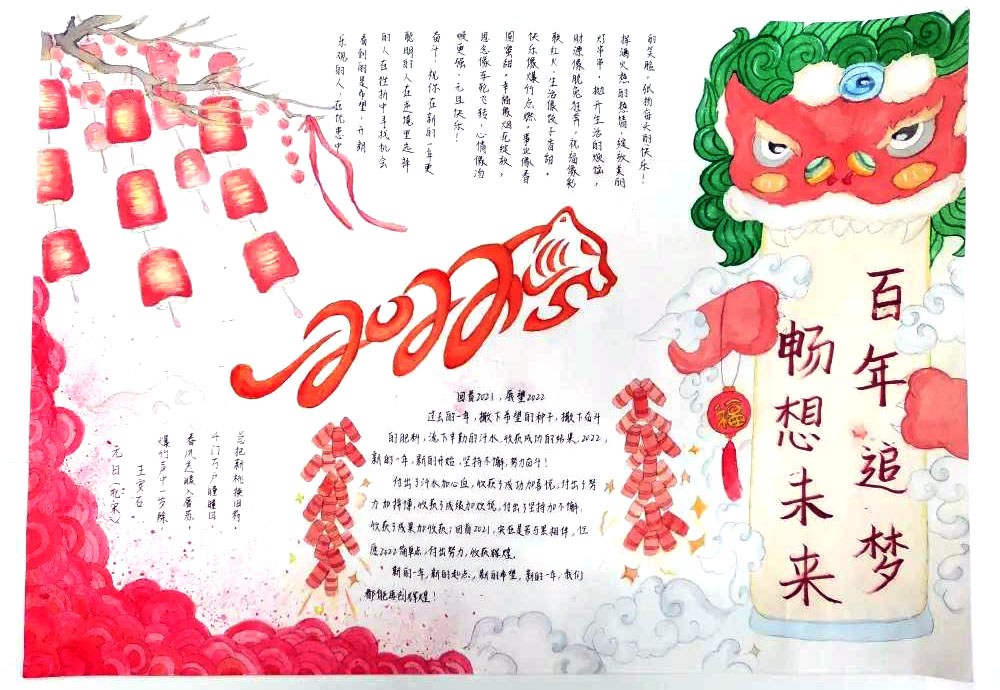 乐观的人，在忧患中
看到的是希望，开朗
的人在挫折中寻找机会
聪明的人在逆境里选择
奋斗！祝你在新的一年更
更强，元旦快乐！
思念像车轮飞转，心情像汤
圆蜜甜，幸福像烟花绽放，
快乐像爆竹点燃，事业像春
般红火，生活像饺子香甜，
财源像脱兔狂奔，祝福像彩
灯串串，抛开生活的烦恼，
挥满火热的热情，绽放美丽
的笑脸，张扬每天的快乐！
百年追梦
畅想未来
福
2022
回首2021，展望2022
过去的一年，撒下希望的种子，撒下奋斗
的肥料，流下辛勤的汗水，收获成功的结果，2022，
新的一年，新的开始，坚持不懈，努力奋斗！
付出了汗水加心血，收获了成功加喜悦，付出了努
力加拼搏，收获了成绩加欢悦，付出了坚持加不懈，
收获了成果加收获；回首2021，实在是苦与累相伴，但
愿2022简单点，付出努力，收获辉煌。
新的一年，新的起点，新的希望，新的一年，我们
都能再创辉煌！
元日（北宋）
王安石
爆竹声中一岁除，
春风送暖入屠苏。
千门万户曈曈日，
总把新桃换旧符。